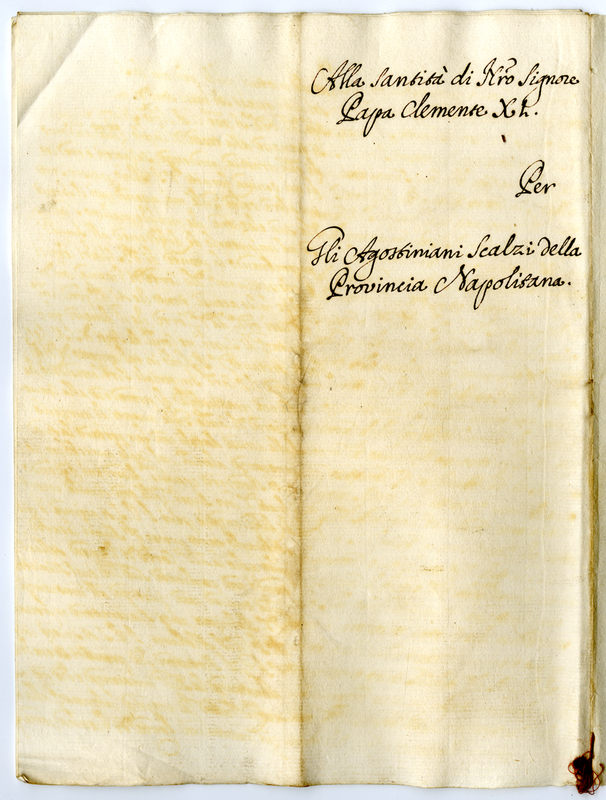 Alla Santità di Nro Signore
Papa Clemente XI.
Per
Gli Agostiniani Scalzi della
Provincia Napolitana.